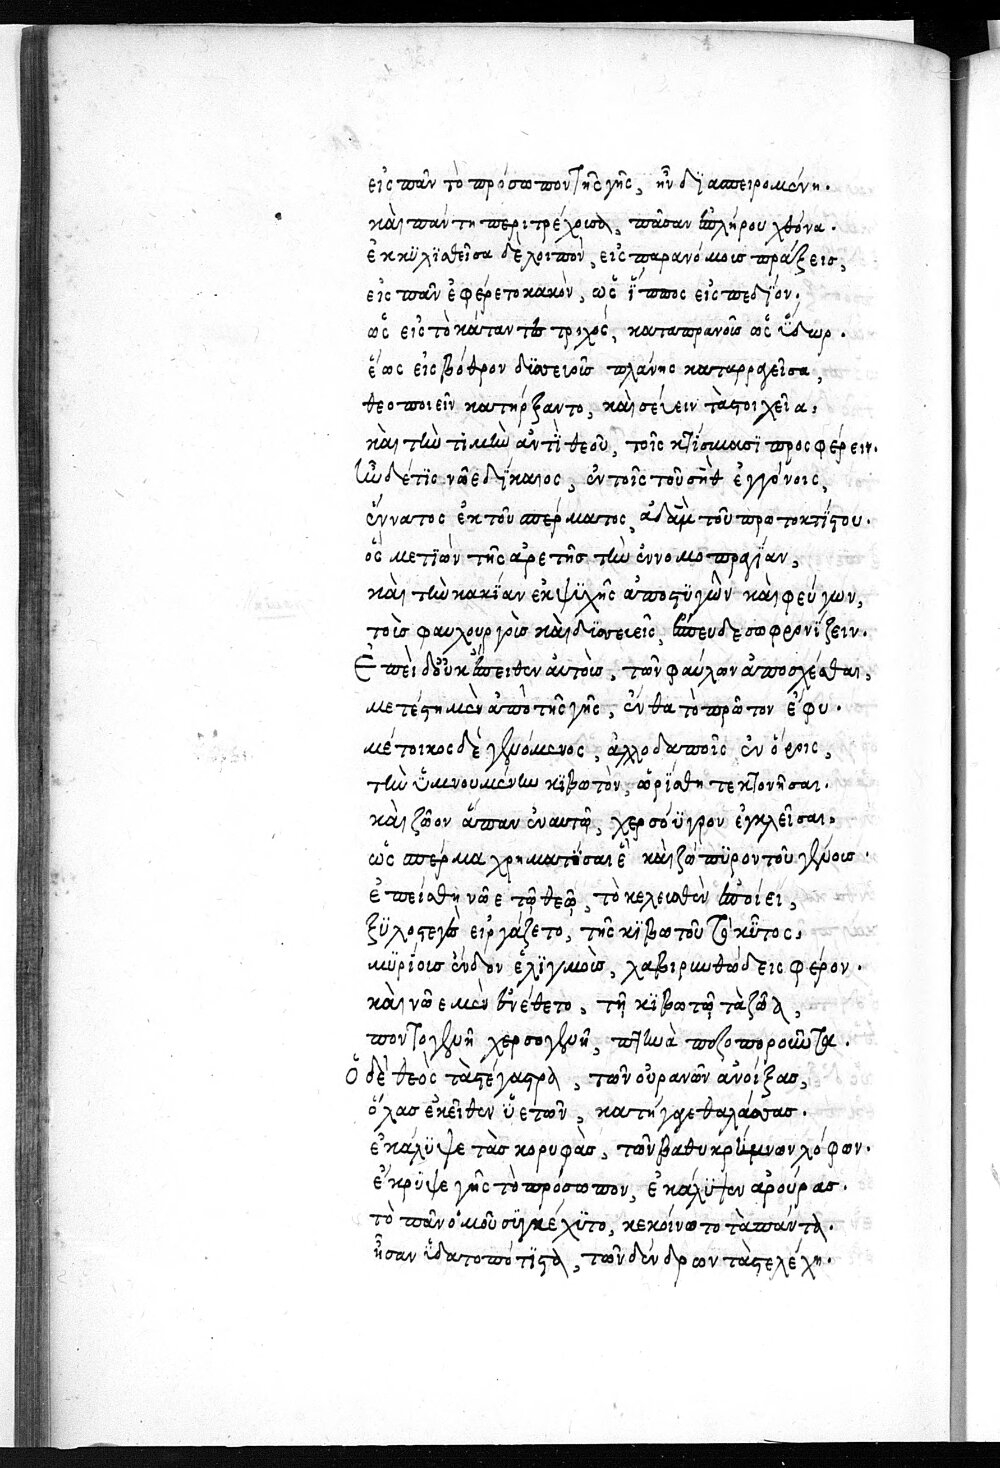 εἰς πᾶν τὸ πρόσωπον τῆς γῆς, ἦν διαπειρομένη.
καὶ πάντη περιτρέχουσα, πᾶσαν ἐπλήρου χθόνα.
ἐκκυλισθεῖσα δὲ λοιπὸν, εἰς παρανόμους πράξεις,
εἰς πᾶν ἐφέρετο κακὸν, ὡς ἵππος εἰς πεδίον.
ὡς εἰς τὸ κάταντες τροχός, καταπρανοῦς ὡς ὕδωρ.
ἕως εἰς βόθρον δυσσεβοῦς πλάνης καταρραγεῖσα,
θεοποιεῖν κατήρξαντο, καὶ σέβειν τὰ στοιχεῖα.
καὶ τὴν τιμὴν ἀντὶ θεοῦ, τοῖς κτίσμασι προσφέρειν.
Ἦν δέ τις νῶε δίκαιος, ἐν τοῖς τοῦ σὴθ ἐγγόνοις,
ἔννατος ἐκ τοῦ σπέρματος, ἀδὰμ τοῦ πρωτοκτίστου.
ὃς μετιὼν τῆς ἀρετῆς τὴν ἔννομο πραγίαν,
καὶ τὴν κακίαν ἐκ ψυχῆς ἀποστυγῶν καὶ φεύγων,
τοὺς φαυλουργοὺς καὶ δυσσεβεῖς, ἔσπευδε σωφρονίζειν.
Ἐπεὶ δ' οὐκ ἔπειθεν αὐτοὺς, τῶν φαύλων ἀποσχέσθαι,
μετέστη μὲν ἀπὸ τῆς γῆς, ἔνθα τὸ πρῶτον ἔφυ.
μέτοικος δὲ γενόμενος, ἀλλοδαποῖς ἐν ὅροις,
τὴν ὑμνουμένην κιβωτὸν, ὡρίσθη τεκτονῆσαι.
καὶ ζῶον ἅπαν ἐν αὐτῇ, χερσόϋγρον ἐγκλεῖσαι.
ὡς σπέρμα χρηματίσαιεν καὶ ζώπυρον τοῦ γένους.
ἐπείσθη νῶε τῷ θεῷ, τὸ κελευσθὲν ἐποίει,
ξυλόστεγον εἰργάζετο, τῆς κιβωτοῦ τὸ κῦτος.
μυρίους ἔνδον ἑλιγμοὺς, λαβυρινθώδεις φέρον.
καὶ νῶε μὲν ἐνέθετο, τῇ κιβωτῷ τὰ ζῶα,
ποντογενῆ χερσογενῆ, πτηνὰ πεζοποροῦντα.
Ὁ δὲ θεὸς τὰ στέγαστρα, τῶν οὐρανῶν ἀνοίξας,
ὅλας ἐκεῖθεν ὑετῶν, κατήγαγε θαλάσσας.
ἐκάλυψε τὰς κορυφὰς, τῶν βαθυκρήμνων λόφων.
ἔκρυψε γῆς τὸ πρόσωπον, ἐκάλυψεν ἀρούρας.
τὸ πᾶν ὁμοῦ συγκέχυτο, κεκοίνωτο τὰ πάντα.
ἦσαν ὑδατοπότιστα, τῶν δένδρων τὰ στελέχη.